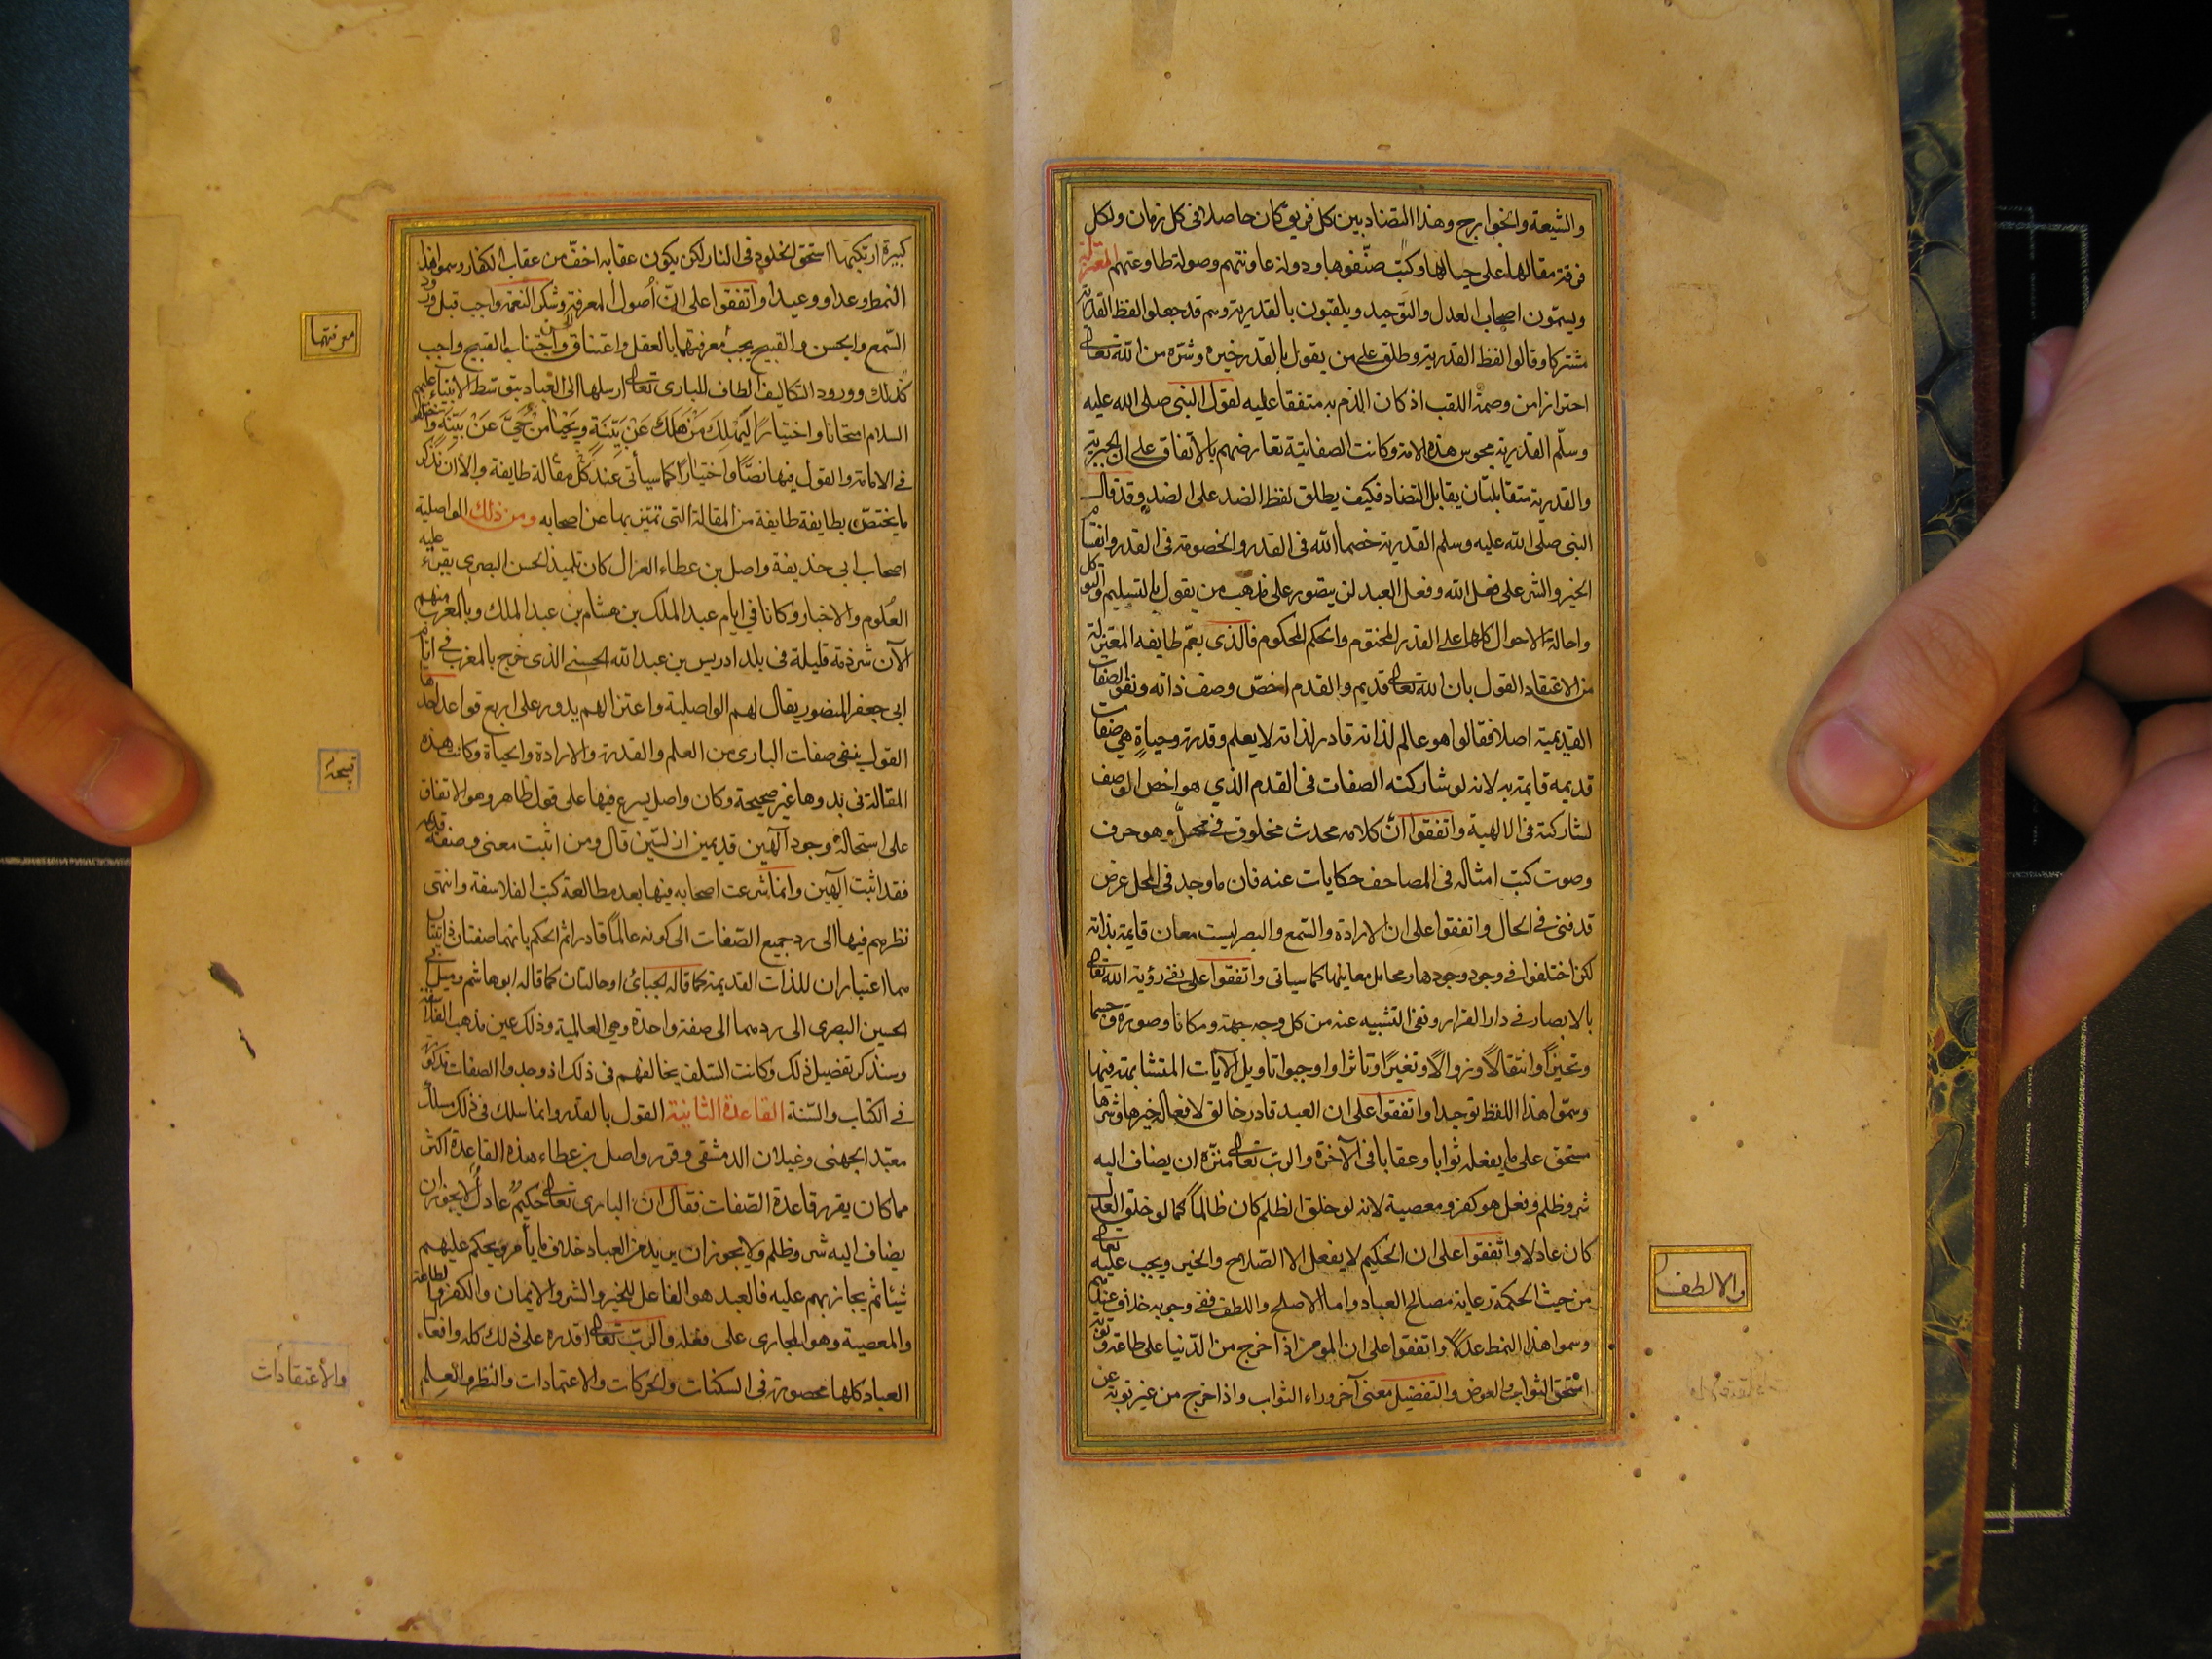 والشيعة والخوارج وهذا التضاد بين كل فريق كان حاصلا فى كل زمان ولكل
فرقة مقالها على حيالها وكتب صنّفوها ودولة عاونتهم وصولة طاوعتهم المعتزلة
ويسمّون اصحاب العدل والتوحيد ويلقبون بالقدرية وهم قد جعلوا لفظ القدرية
مشتركا وقالوا لفظ القدرية وطلق على من يقول بالقدر خيره وشره من الله تعالى
احترازا من وصمة اللقب اذ كان الذم به متفقا عليه لقول النبى صلى الله عليه
وسلّم القدرية مجوس هذه الامة وكانت الصفاتية تعارضهم بالاتفاق على ان الجبرية
والقدرية متقابلتان يقابل التضاد فكيف يطلق لفظ الضد على الضد وقد قال
النبى صلى الله عليه وسلم القدرية خصماء الله فى القدر والخصومة فى القدر وانقسام
الخير والشر على فعل الله وفعل العبد لن يتصور على مذهب من يقول بالتسليم والتوكل
واحالة الاحوال كلها على القدر المختوم والحكم المحكوم فالذى يعمّ طايفه المعتزلة
من الاعتقاد القول بان الله تعالى قديم والقدم اخصّ وصف ذاته ونفوا الصفات
القديمية اصلا فقالوا هو عالم لذاته قادر لذاته لا يعلم وقدرة وحياة هى صفات
قديمه قايمة به لانه لو شاركته الصفات فى القدم الذي هو اخص الوصف
لشاركته فى الالهية واتفقوا انّ كلامه محدث مخلوق فى محلّ وهو حرف
وصوت كتب امثاله فى المصاحف حكايات عنه فان ما وجد فى المحل عرض
قد فنى فى الحال واتفقوا على ان الارادة والسّمع والبصر ليست معان قايمة بذاته
لكن اختلفوا فى وجود وجودها ومحامل معاينها كما سياتى واتفقوا على نفى رؤية الله تعالى
بالابصار فى دار القرار ونفى التشبيه عنه من كل وجه جهة ومكانا وصورة وجسما
وتحيزًا وانتقالًا وزوالًا وتغيرًا وتاثرا واوجبوا تاويل الآيات المتشابهة فيها
وسمّوا هذا اللفظ توحيدا واتفقوا على ان العبد قادر خالق لافعاله خيرها وشرها
مستحق على ما يفعله ثوابا وعقابا فى الآخرة والرب تعالى منزّه ان يضاف اليه
شر وظلم وفعل هو كفر ومعصية لانه لو خلق الظلم كان ظالمًا كما لو خلق العدل
كان عادلا واتفقوا على ان الحكيم لا يفعل الا الصّلاح والخير ويجب عليه تعالى
من حيث الحكمة رعاية مصالح العباد واما الاصلح واللطف ففى وجوبه خلاف عندهم
والالطف
وسموا هذا النمط عدلًا واتفقوا على ان المؤمن اذا خرج من الدّنيا على طاعة وتوبة
استحق الثواب والعوض والتفضيل معنى آخر وراء الثواب واذا خرج من غير توبة عن
كبيرة ارتكبها استحق الخلود فى النار لكن يكون عقابه اخفّ من عقاب الكفار وسموا هذا
النمط وعدا ووعيدا واتفقوا على انّ أصول المعرفة وشكر النعمة واجب قبل ورود
السّمع والحسن والقبيح يجب معرفتهما بالعقل واعتناق الحسن واجتناب القبيح واجب
معرفتهما
كذلك وورود التكاليف الطاف للبارى تعالى ارسلها الى العباد بتوسّط الانبياء عليهم
السلام امتحانا واختيارًا ليَهلِكَ مَنْ هَلَكَ عَنْ بَيِّنَةٍ ويَحْيَا مَنْ حَيَّ عَنْ بَيِّنَة واختلفوا
فى الامامة والقول فيها نصًّا واختيارًا كما سيأتى عند كلّ مقالة طايفة والآن نذكر
ما يختصّ بطايفة طايفة من المقالة التى تميّز بها عن اصحابه ومن ذلك الواصلية
اصحاب ابى حذيفة واصل بن عطاء الغزال كان تلميذ الحسن البصرى يقرء عليه
العلوم والاخبار وكانا فى ايام عبد الملك بن هشام بن عبد الملك وبالمغرب منهم
الآن شرذمة قليلة فى بلد ادريس بن عبد الله الحسنى الذى خرج بالمغرب فى ايام
ابى جعفر المنصور يقال لهم الواصلية واعتزالهم يدور على اربع قواعد احدها
القول بنفى صفات البارى من العلم والقدرة والارادة والحياة وكانت هذه
المقالة فى بدوها غير صحيحة وكان واصل يسرع فيها على قول ظاهر وهو الاتفاق
على استحالة وجود آلهين قديمين ازليّين قال ومن اثبت معنى وصفة قديمة
فقد اثبت الهين وانما شرعت اصحابه فيها بعد مطالعة كتب الفلاسفة وانتهى
نظرهم فيها الى رد جميع الصّفات الى كونه عالمًا قادرا ثم الحكم بانهما صفتان ذاتيتان
هما اعتباران للذات القديمة كما قاله الجبائى او حالتان كما قاله ابو هاشم وميل ابى
الحسين البصرى الى ردهما الى صفة واحدة وهى العالمية وذلك عين مذهب الفلاسفة
وسنذكر تفصيل ذلك وكانت السّلف يخالفهم فى ذلك اذ وجدوا الصفات مذكورة
فى الكتاب والسّنة القاعدة الثانية القول بالقدر وانما سلك فى ذلك مسلك
معبد الجهنى وغيلان الدمشقى وقرر واصل بن عطاء هذه القاعدة اكثر
مما كان يقرر قاعدة الصّفات فقال ان البارى تعالى حكيم عادل لا يجوز ان
يضاف اليه شر وظلم ولا يجوز ان يريد من العباد خلاف ما يأمر ويحكم عليهم
شيئا ثم يجازيهم عليه فالعبد هو الفاعل للخير والشر والايمان والكفر والطاعة
والمعصية وهو المجازى على فعله والرب تعالى اقدره على ذلك كله وافعال
العباد كلها محصورة فى السكنات والحركات والاعتمادات والنظر والعلم
والأعتقادات